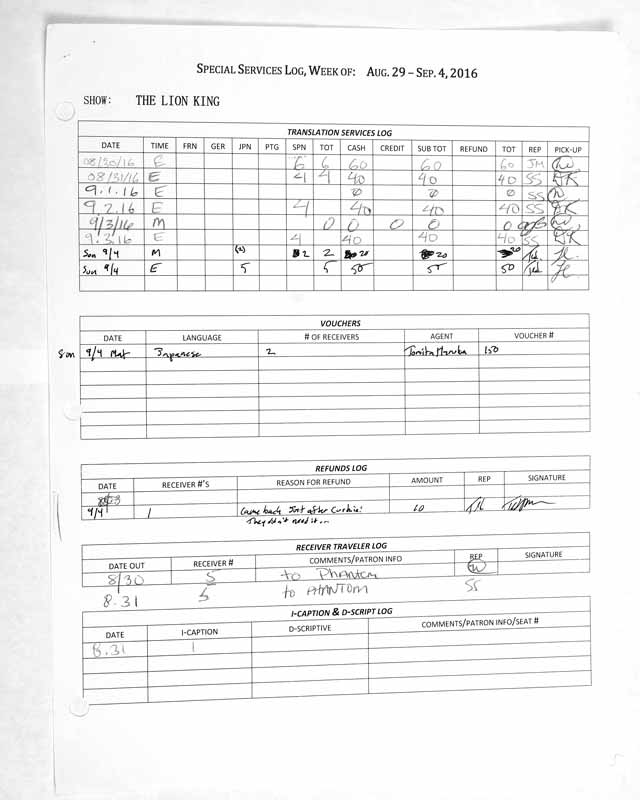 SPECIAL SERVICES LOG, WEEK OF: AUG. 29 – SEP. 4, 2016
SHOW: THE LION KING
TRANSLATION SERVICES LOG
DATE TIME FRN GER JPN PTG SPN TOT CASH CREDIT SUB TOT REFUND TOT REP PICK-UP
08/30/16 E 6 6 60 60 60 JM
08/31/16 E 4 4 40 40 40 SS
9.1.16 E Ø Ø Ø SS
9.2.16 E 4 40 40 40 SS
9/3/16 M 0 0 0 0 0
9.3.16 E 4 40 40 40 SS
Sun 9/4 M (2) 2 2 20 20 20
Sun 9/4 E 5 5 50 50 50
VOUCHERS
DATE LANGUAGE # OF RECEIVERS AGENT VOUCHER #
Sun 9/4 Mat Japanese 2 150
REFUNDS LOG
DATE RECEIVER #'S REASON FOR REFUND AMOUNT REP SIGNATURE
9/4 1 Came back Just after Curtain! 10
They didn't need it...
RECEIVER TRAVELER LOG
DATE OUT RECEIVER # COMMENTS/PATRON INFO REP SIGNATURE
8/30 5 to Phantom
8.31 5 to PHANTOM SS
I-CAPTION & D-SCRIPT LOG
DATE I-CAPTION D-SCRIPTIVE COMMENTS/PATRON INFO/SEAT #
8.31 1